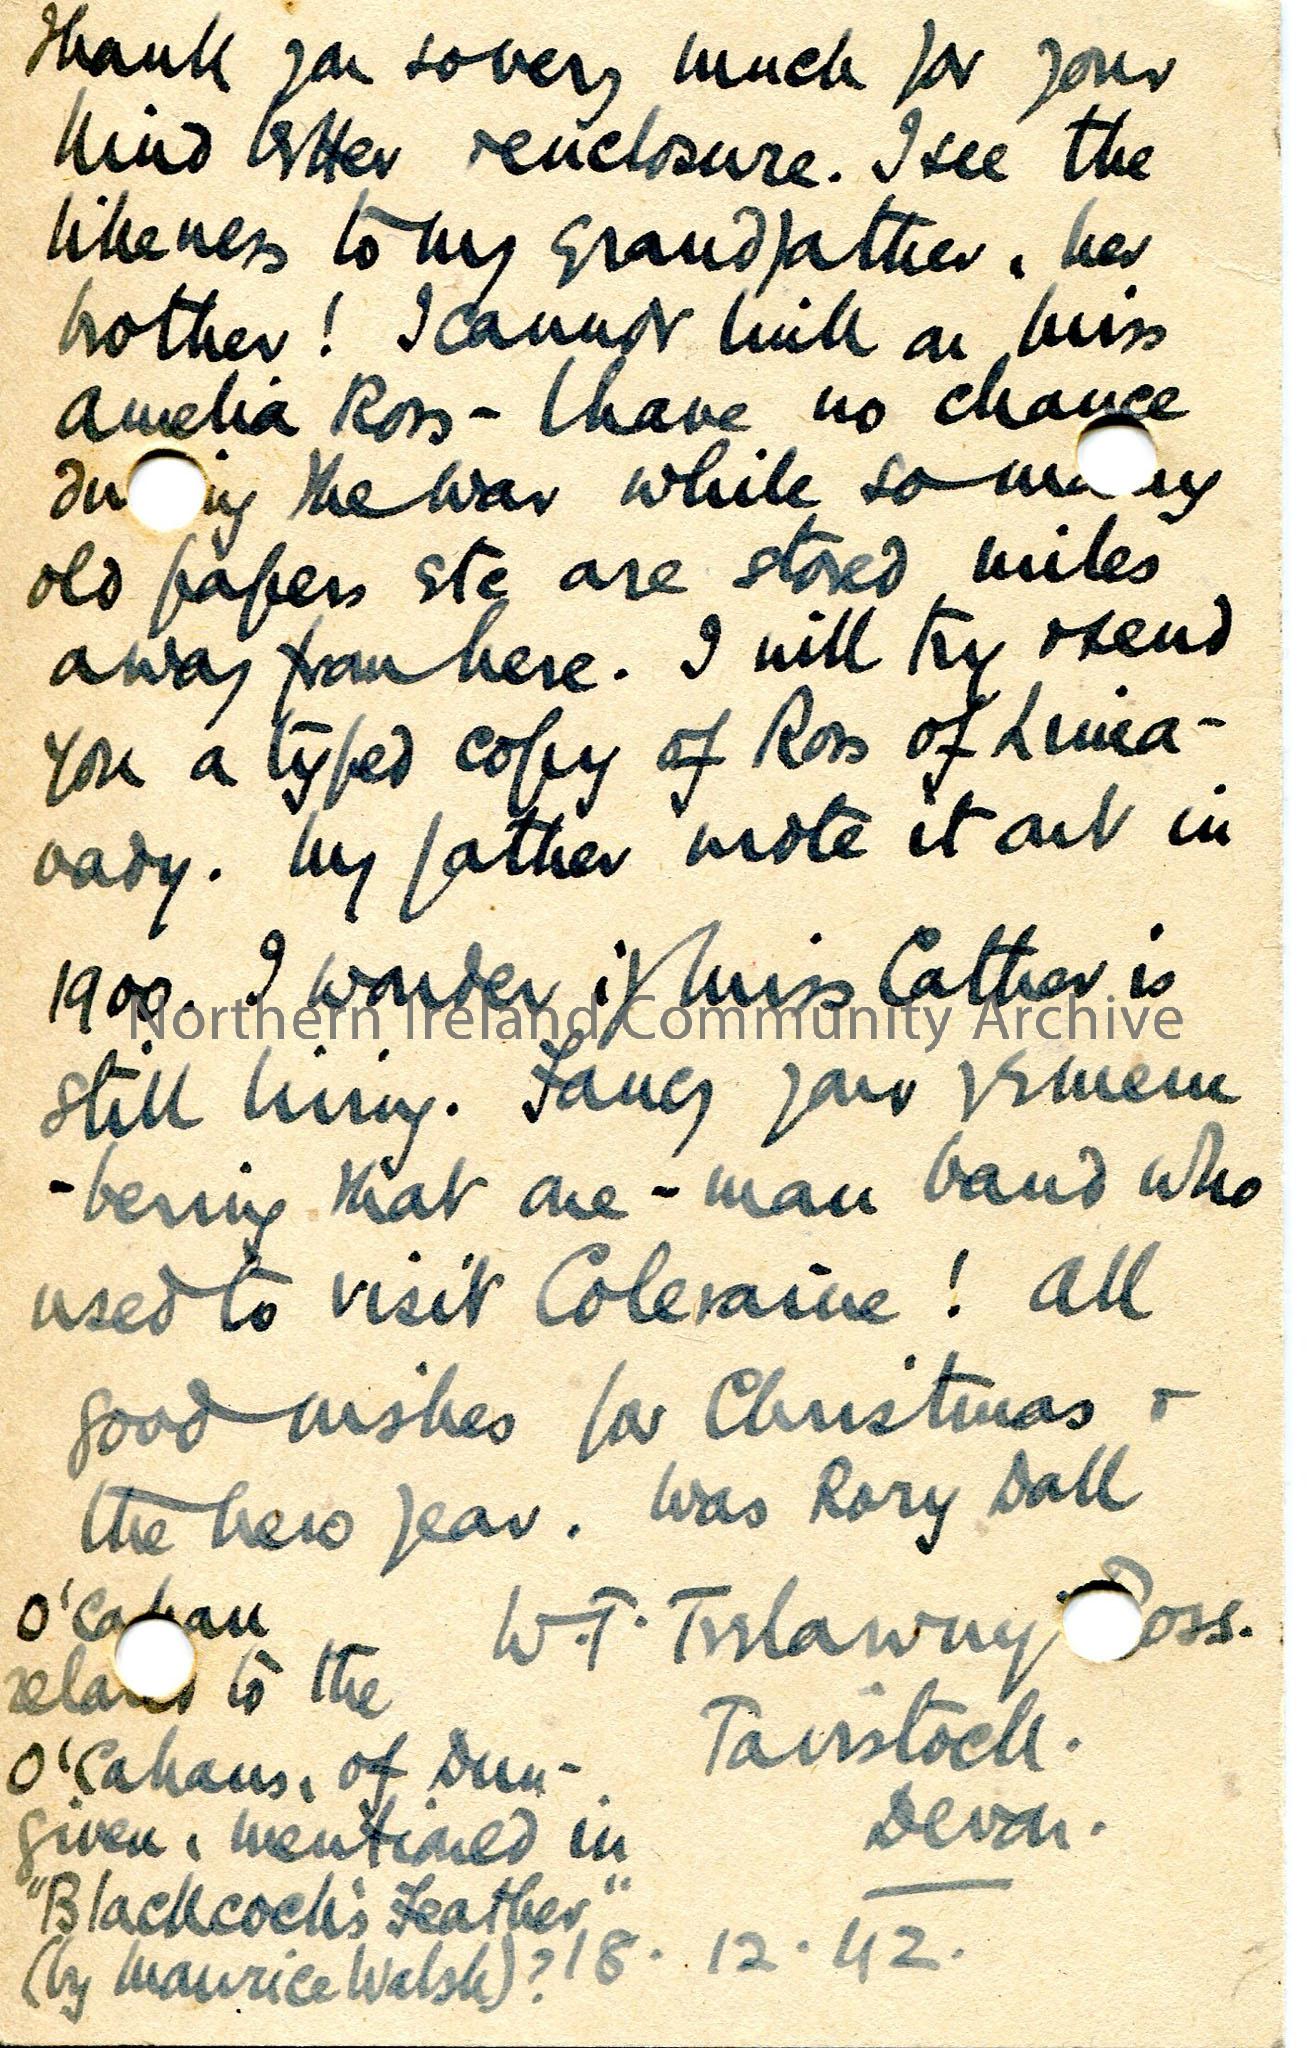 Thank you so very much for your
kind letter & enclosure. I see the
likeness to my grandfather, her
brother! I cannot link on Miss
Amelia Ross - I have no chance
during the war while so many
old papers etc are stored miles
away from here. I will try & send
you a typed copy of Ross of Lima-
vady. My father wrote it out in
1900. I wonder if Miss Cather is
still living. Fancy your remem
-bering that one-man band who
used to visit Coleraine! All
good wishes for Christmas &
the New Year. Was Rory Dall
O'Cahan
related to the
O'Cahans, of Dun-
given, mentioned in
"Blackcock's Feather"
(by Maurice Walsh)?
W.T. Trelawny Ross.
Tavistock.
Devon.
18. 12. 42.
Northern Ireland Community Archive